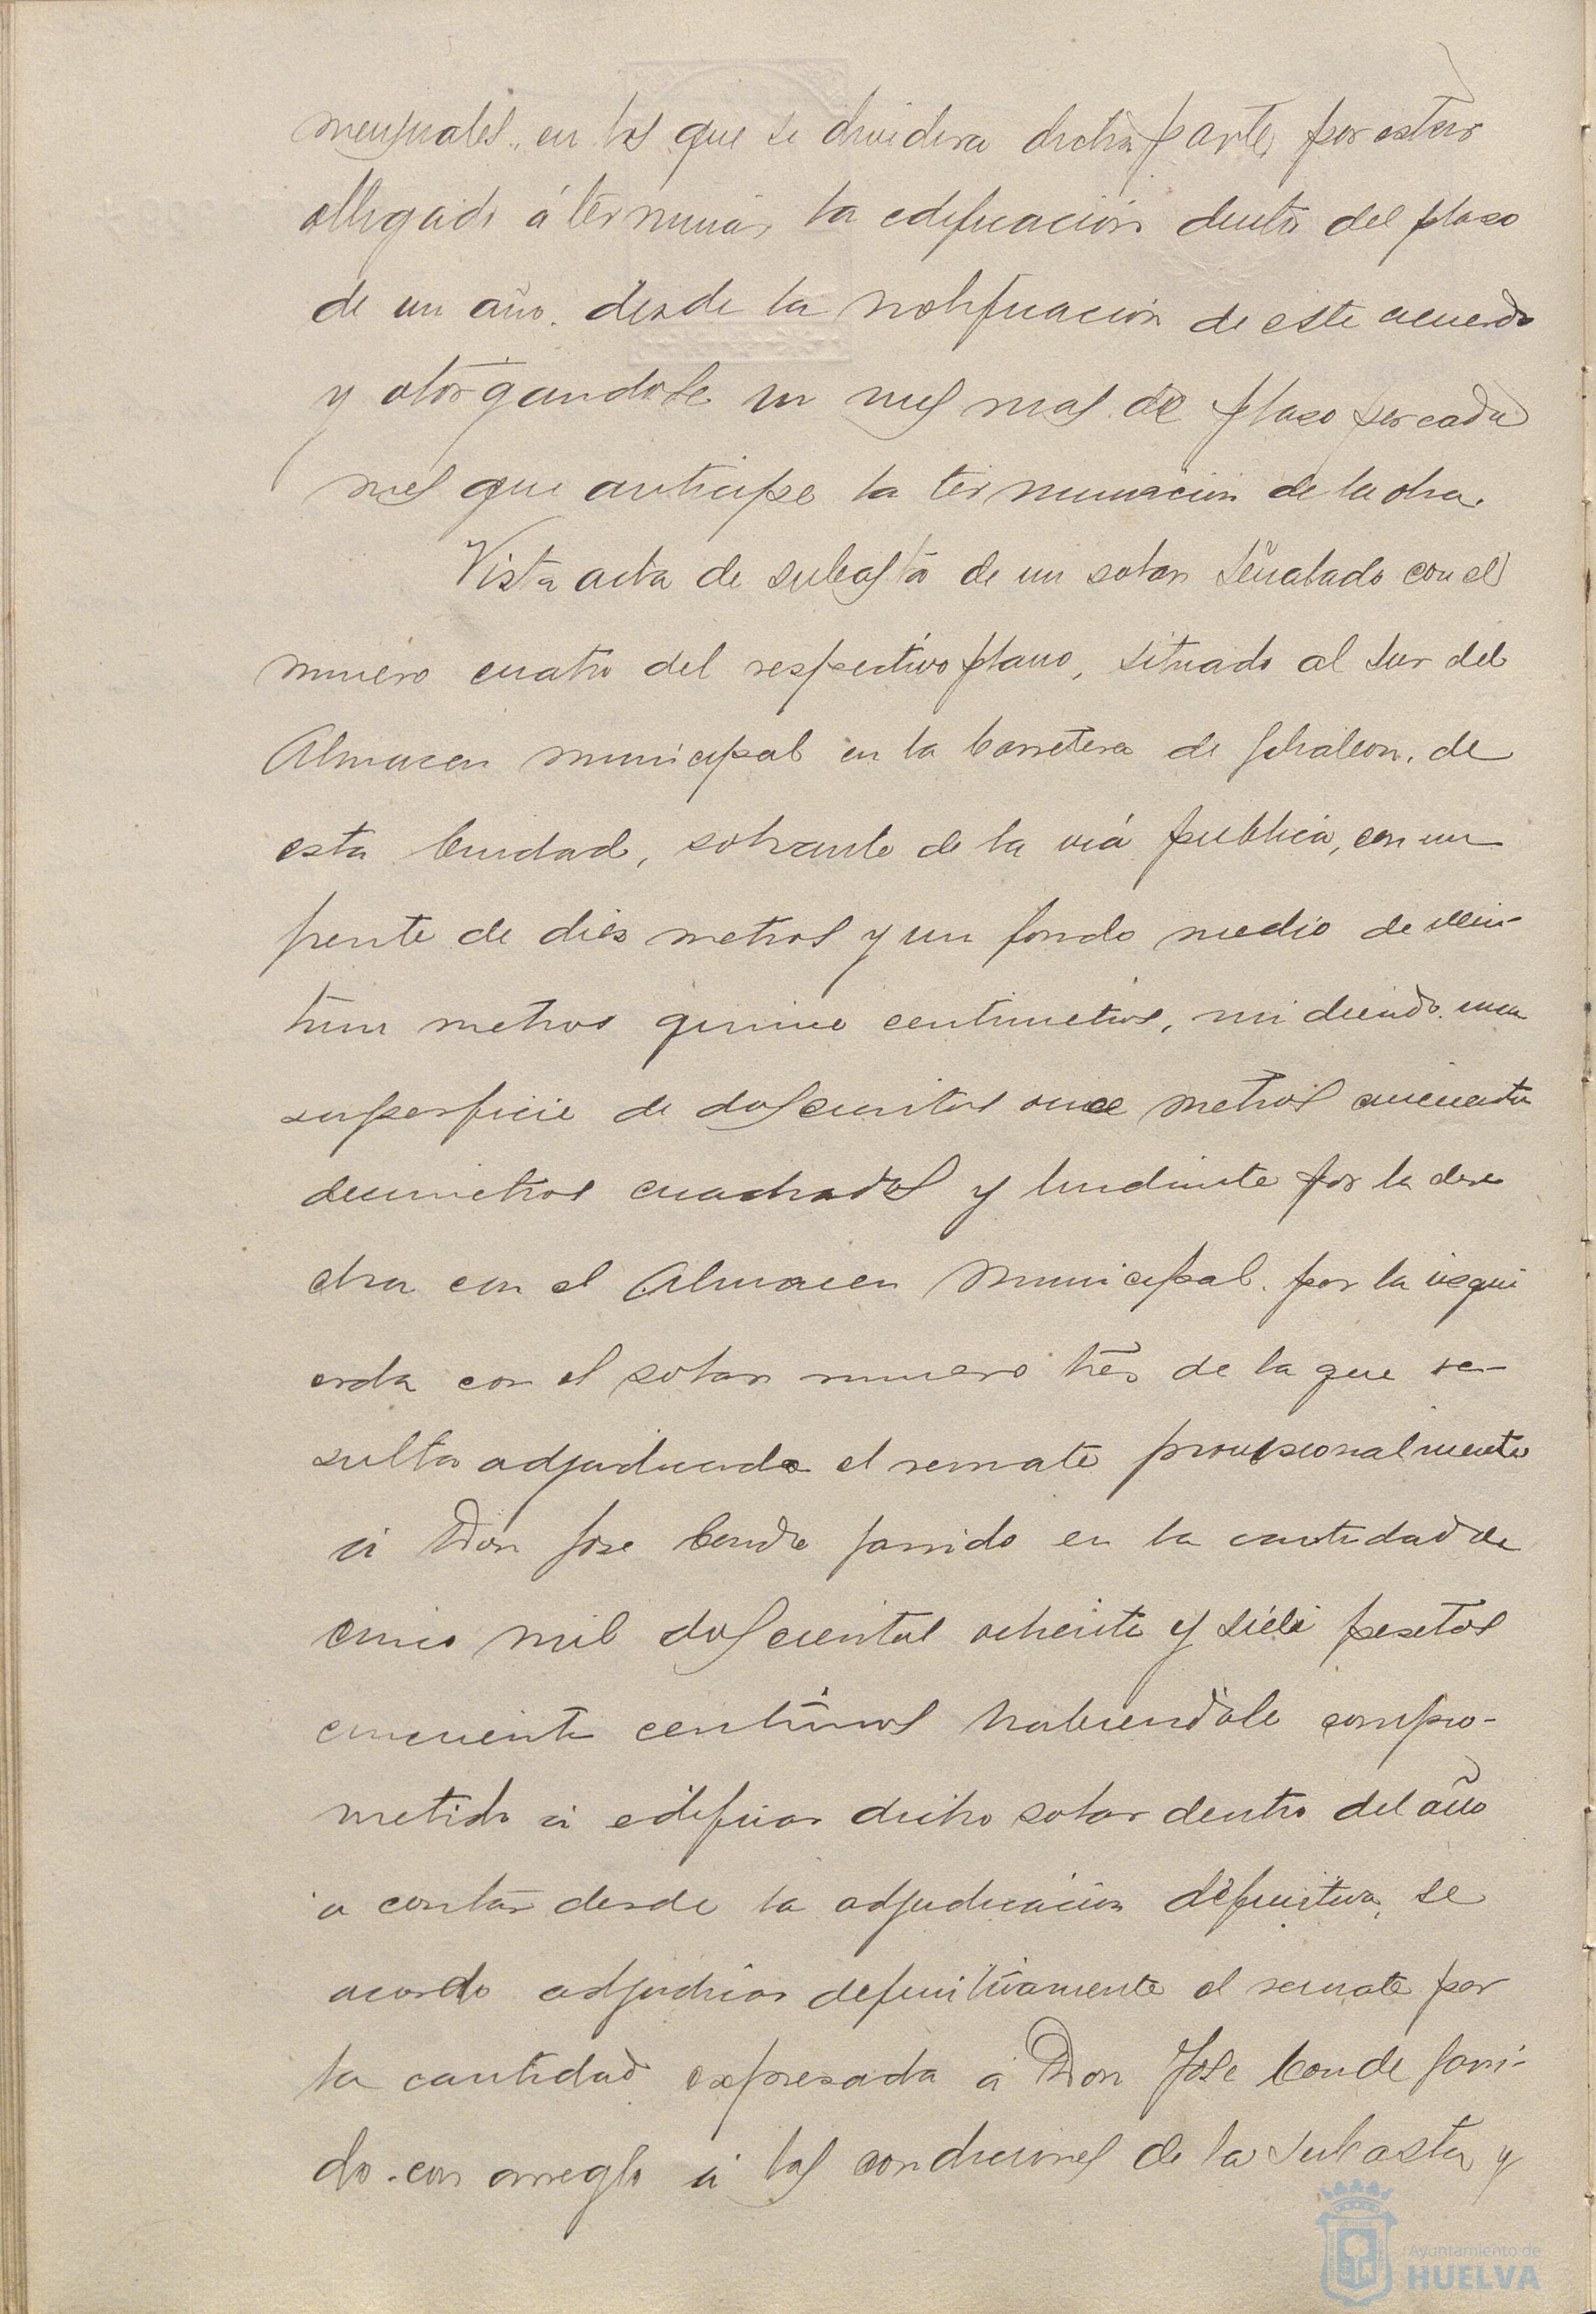 mensuales, en las que se dividira dicha parte, por estar
obligado á terminar la edificación dentro del plazo
de un año. desde la notificación de este acuerdo
y otorgandole un mes mas de plazo por cada
mes que anticipe la terminacion de la obra.
Vista acta de subasta de un solar señalado con el
numero cuatro del respectivo plano, situado al Sur del
Almacen municipal en la Carretera de Gibraleon, de
esta Ciudad, sobrante de la via publica, con un
frente de diez metros y un fondo medio de vein-
tiun metros quince centimetros, midiendo una
superficie de doscientos once metros cincuenta
decimetros cuadrados y lindante por la dere
cha con el Almacen Municipal. por la izqui
erda con el solar numero tres de la que re-
sulta adjudicado el remate provisionalmente
á Don Jose Conde Garrido en la cantidad de
cinco mil doscientas ochenta y siete pesetas
cincuenta centimos habiendole compro-
metido á edificar dicho solar dentro del año
a contar desde la adjudicación definitiva, se
acordo adjudicar definitivamente el remate por
la cantidad expresada a Don Jose Conde Garri-
do. con arreglo á las condiciones de la subasta y
Ayuntamiento de
HUELVA